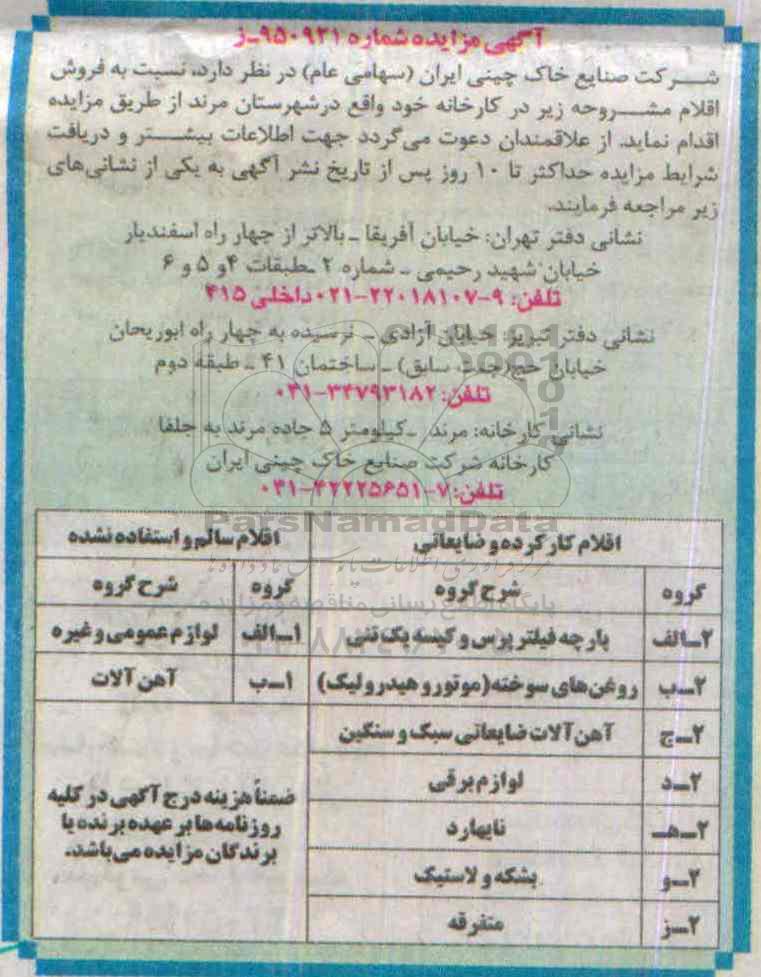 آگهی مزایده شماره ۹۵۰۹۲۱-ز
شرکت صنایع خاک چینی ایران (سهامی عام) در نظر دارد، نسبت به فروش
اقلام مشروحه زیر در کارخانه خود واقع درشهرستان مرند از طریق مزایده
اقدام نماید. از علاقمندان دعوت می‌گردد جهت اطلاعات بیشتر و دریافت
شرایط مزایده حداکثر تا ۱۰ روز پس از تاریخ نشر آگهی به یکی از نشانی‌های
زیر مراجعه فرمایند.
نشانی دفتر تهران: خیابان آفریقا - بالاتر از چهار راه اسفندیار
خیابان شهید رحیمی - شماره ۲ - طبقات ۴ و ۵ و ۶
تلفن: ۹-۲۲۰۱۸۱۰۷-۰۲۱ داخلی ۴۱۵
نشانی دفتر تبریز: خیابان آزادی - نرسیده به چهار راه ابوریحان
خیابان حج (جنت سابق) - ساختمان ۴۱ - طبقه دوم
تلفن: ۳۴۷۹۳۱۸۲-۰۴۱
نشانی کارخانه: مرند - کیلومتر ۵ جاده مرند به جلفا
کارخانه شرکت صنایع خاک چینی ایران
تلفن: ۷-۴۲۲۲۵۶۵۱-۰۴۱
ParsNamadData
اقلام کارکرده و ضایعاتی	اقلام سالم و استفاده نشده
گروه	شرح گروه	گروه	شرح گروه
۲-الف	پارچه فیلتر پرس و کیسه یک تنی	۱-الف	لوازم عمومی و غیره
۲-ب	روغن‌های سوخته (موتور و هیدرولیک)	۱-ب	آهن آلات
۲-ج	آهن آلات ضایعاتی سبک و سنگین
۲-د	لوازم برقی
۲-هـ	نایهارد
۲-و	بشکه و لاستیک
۲-ز	متفرقه
ضمناً هزینه درج آگهی در کلیه
روزنامه‌ها بر عهده برنده یا
برندگان مزایده می‌باشد.